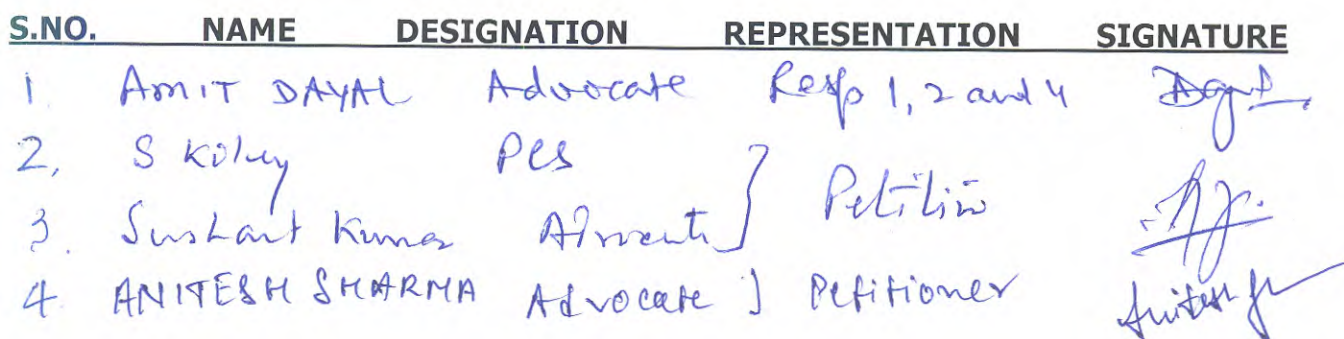 S.NO. NAME DESIGNATION REPRESENTATION SIGNATURE
1. AMIT DAYAL Advocate Resp 1, 2 and 4
2. S PCS
3. Sushant Kumar Advocate ] Petition
4. ANITESH SHARMA Advocate ] Petitioner Anitesh